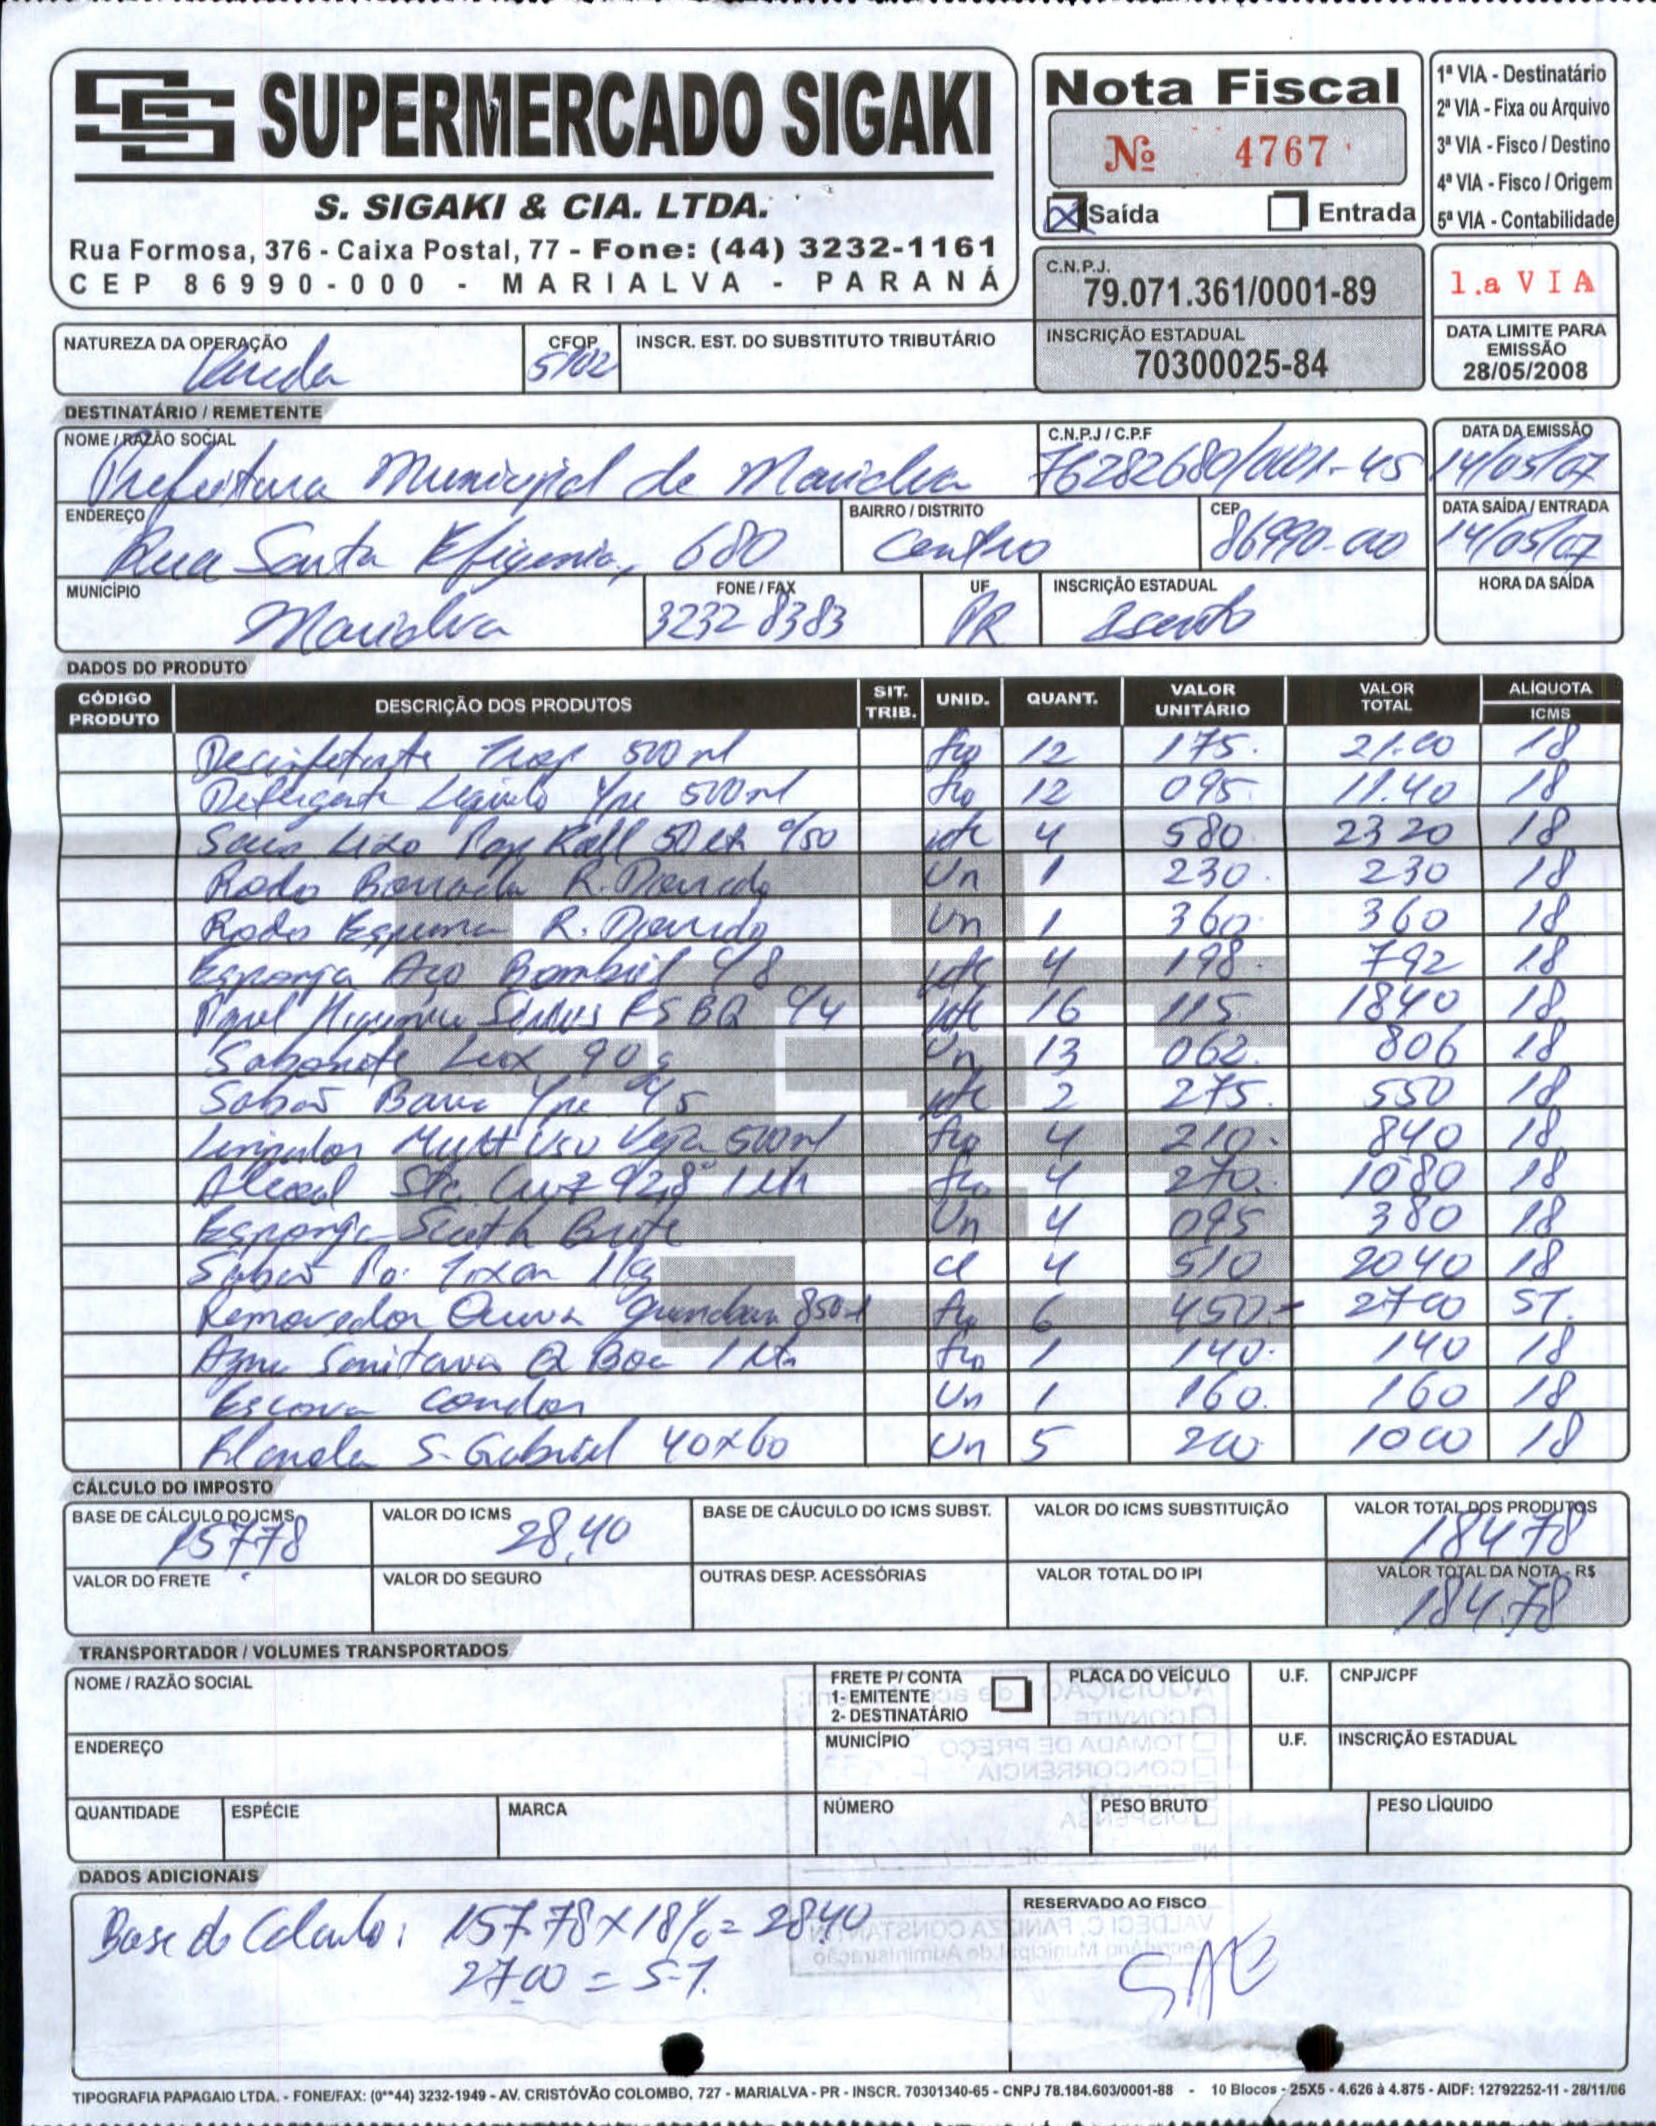 SUPERMERCADO SIGAKI
S. SIGAKI & CIA. LTDA.
Rua Formosa, 376 - Caixa Postal, 77 - Fone: (44) 3232-1161
CEP 86990-000 - MARIALVA - PARANÁ
Nota Fiscal
Nº 4767
Saída Entrada
1ª VIA - Destinatário
2ª VIA - Fixa ou Arquivo
3ª VIA - Fisco / Destino
4ª VIA - Fisco / Origem
5ª VIA - Contabilidade
C.N.P.J.
79.071.361/0001-89
1.a VIA
NATUREZA DA OPERAÇÃO CFOP INSCR. EST. DO SUBSTITUTO TRIBUTÁRIO
Venda 5102
INSCRIÇÃO ESTADUAL
70300025-84
DATA LIMITE PARA
EMISSÃO
28/05/2008
DESTINATÁRIO / REMETENTE
NOME / RAZÃO SOCIAL C.N.P.J / C.P.F DATA DA EMISSÃO
Prefeitura Municipal de Marialva 76282680/0001-45 14/05/07
ENDEREÇO BAIRRO / DISTRITO CEP DATA SAÍDA / ENTRADA
Rua Santa Efigenia, 680 Centro 86990-000 14/05/07
MUNICÍPIO FONE / FAX UF INSCRIÇÃO ESTADUAL HORA DA SAÍDA
Marialva 3232 8383 PR Isento
DADOS DO PRODUTO
CÓDIGO PRODUTO DESCRIÇÃO DOS PRODUTOS SIT. TRIB. UNID. QUANT. VALOR UNITÁRIO VALOR TOTAL ALÍQUOTA ICMS
Desinfetante 500 ml 12 175 21.00 18
Detergente Liquido Ype 500ml 12 095 11.40 18
Saco Lixo 50 c/50 4 580 2320 18
Rodo Borracha R. Un 1 230 230 18
Rodo Espuma R. Un 1 360 360 18
Esponja Aço Bombril c/8 4 198 792 18
Papel c/4 16 115 1840 18
Sabonete Lux 90g Un 13 062 806 18
Sabão Barra Ype c/5 2 275 550 18
Limpador Mult Uso Veja 500ml 4 210 840 18
Alcool Sta Cruz 92,8° 1 Lth 4 270 1080 18
Esponja Scoth Brite Un 4 095 380 18
Sabão Po. Tixan 1kg 4 510 2040 18
Removedor 850 6 450 2700 ST.
Agua Sanitaria Q Boa 1 Lth 1 140 140 18
Escova Condor Un 1 160 160 18
Flanela S. Gabriel 40x60 Un 5 200 1000 18
CÁLCULO DO IMPOSTO
BASE DE CÁLCULO DO ICMS VALOR DO ICMS BASE DE CÁUCULO DO ICMS SUBST. VALOR DO ICMS SUBSTITUIÇÃO VALOR TOTAL DOS PRODUTOS
157.78 28,40 184.78
VALOR DO FRETE VALOR DO SEGURO OUTRAS DESP. ACESSÓRIAS VALOR TOTAL DO IPI VALOR TOTAL DA NOTA - R$
184.78
TRANSPORTADOR / VOLUMES TRANSPORTADOS
NOME / RAZÃO SOCIAL FRETE P/ CONTA PLACA DO VEÍCULO U.F. CNPJ/CPF
1- EMITENTE
2- DESTINATÁRIO
ENDEREÇO MUNICÍPIO U.F. INSCRIÇÃO ESTADUAL
QUANTIDADE ESPÉCIE MARCA NÚMERO PESO BRUTO PESO LÍQUIDO
DADOS ADICIONAIS
Base de Calculo: 157.78 x 18% = 28.40
27.00 = S.T.
RESERVADO AO FISCO
TIPOGRAFIA PAPAGAIO LTDA. - FONE/FAX: (0**44) 3232-1949 - AV. CRISTÓVÃO COLOMBO, 727 - MARIALVA - PR - INSCR. 70301340-65 - CNPJ 78.184.603/0001-88 - 10 Blocos - 25X5 - 4.626 à 4.875 - AIDF: 12792252-11 - 28/11/06